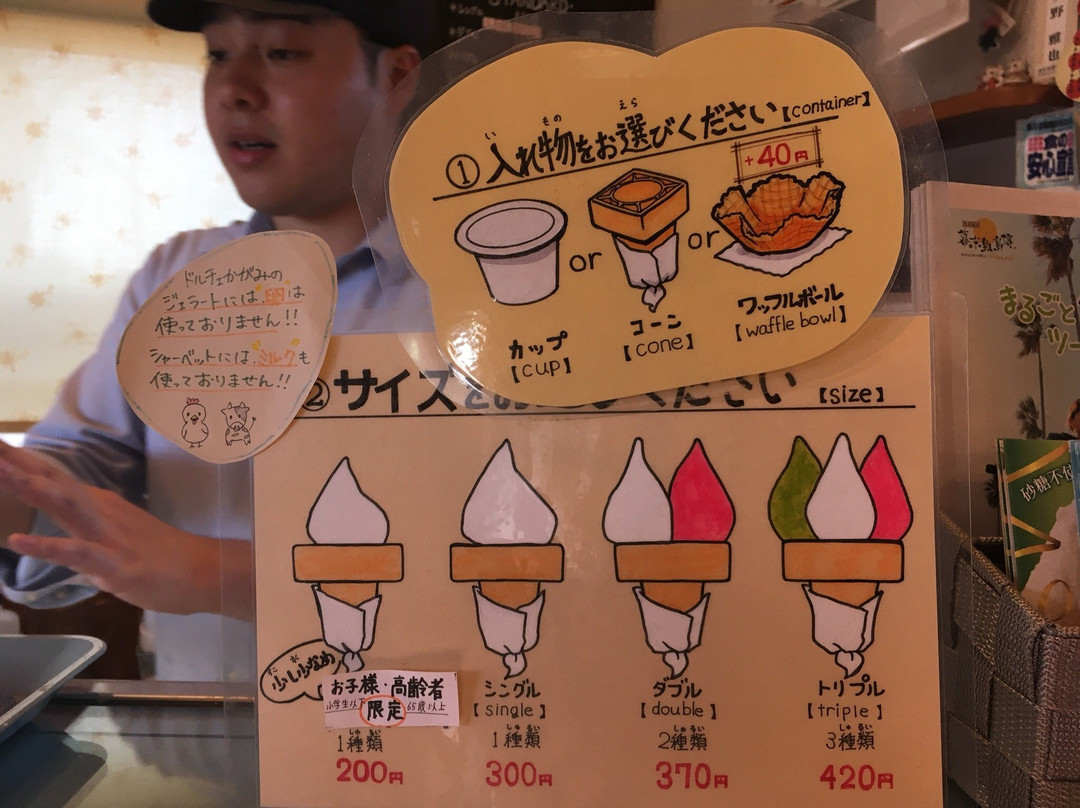 STANDARD
①入れ物をお選びください【container】
いもの えら
+40円
or
or
カップ
【cup】
コーン
【cone】
ワッフルボール
【waffle bowl】
ドルチェかがみの
ジェラートには、卵は
使っておりません!!
シャーベットには、ミルクも
使っておりません!!
②サイズ ください【size】
少し少なめ
すこ すく
お子様・高齢者
小学生以下 限定 65歳以上
1種類
しゅるい
200円
シングル
【single】
1種類
しゅるい
300円
ダブル
【double】
2種類
しゅるい
370円
トリプル
【triple】
3種類
しゅるい
420円
野 雅也
食の
安心
まるごと
ツー
砂糖不使